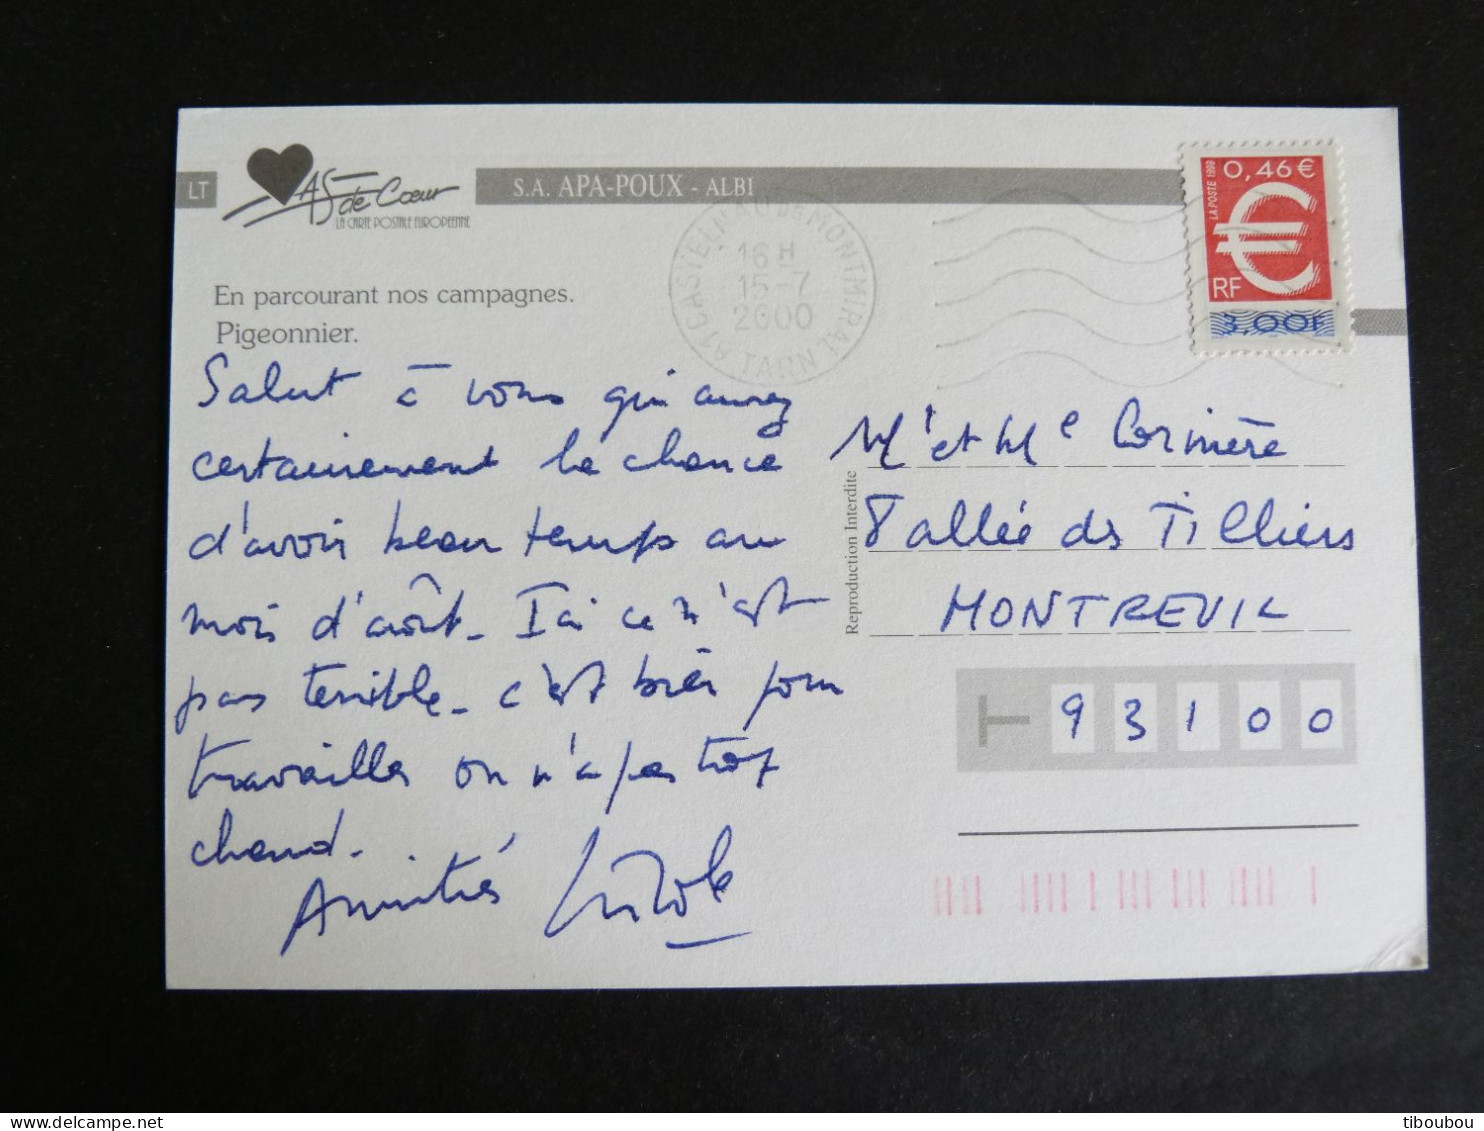 LT
AS de Cœur
LA CARTE POSTALE EUROPEENNE
S.A. APA-POUX - ALBI
En parcourant nos campagnes.
Pigeonnier.
81 CASTELNAU DE MONTMIRAL TARN
16 H
15-7
2000
0,46 €
LA POSTE 1999
€
RF
3,00F
Salut à vous qui aurez
certainement la chance
d'avoir beau temps au
mois d'août. Ici ce n'est
pas terrible. c'est bien pour
travailler on n'a pas trop
chaud.
Amitiés
Reproduction Interdite
Mr et Me Corinière
8 allée des Tilliers
MONTREUIL
93100
tiboubou